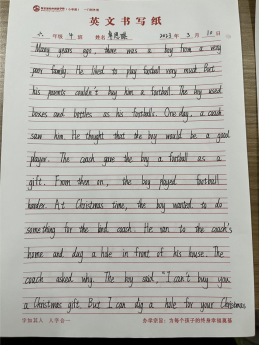 英文书写纸
六 年级 班 姓名 2023 年 3 月 20 日
Many years ago there was a boy from a very
poor family. He liked to play football very much. But
his parents couldn't buy him a football. The boy used
boxes and bottles as his footballs. One day, a coach
saw him. He thought that the boy would be a good
player. The coach gave the boy a football as a
gift. From then on, the boy played football
harder. At Christmas time, the boy wanted to do
something for the kind coach. He ran to the coach's
home and dug a hole in front of his house. The
coach asked why. The boy said, "I can't buy you
a Christmas gift. But I can dig a hole for your Christmas
办学宗旨：为每个孩子的终身幸福奠基